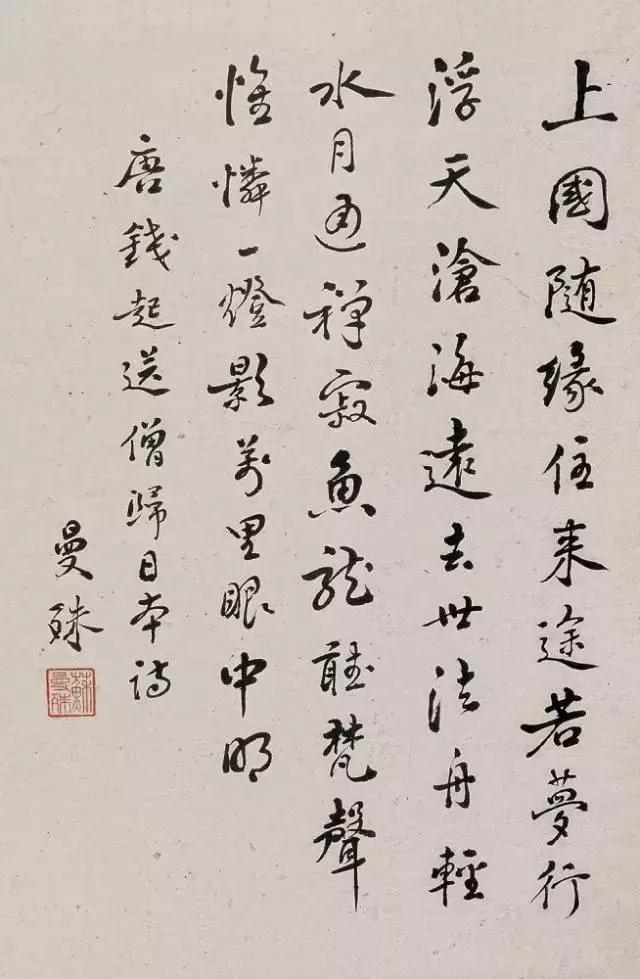 上國隨緣住来途若夢行
浮天滄海遠去世法舟輕
水月通禪寂魚龍聽梵聲
惟憐一燈影萬里眼中明
唐錢起送僧歸日本詩
曼殊
蘇曼殊